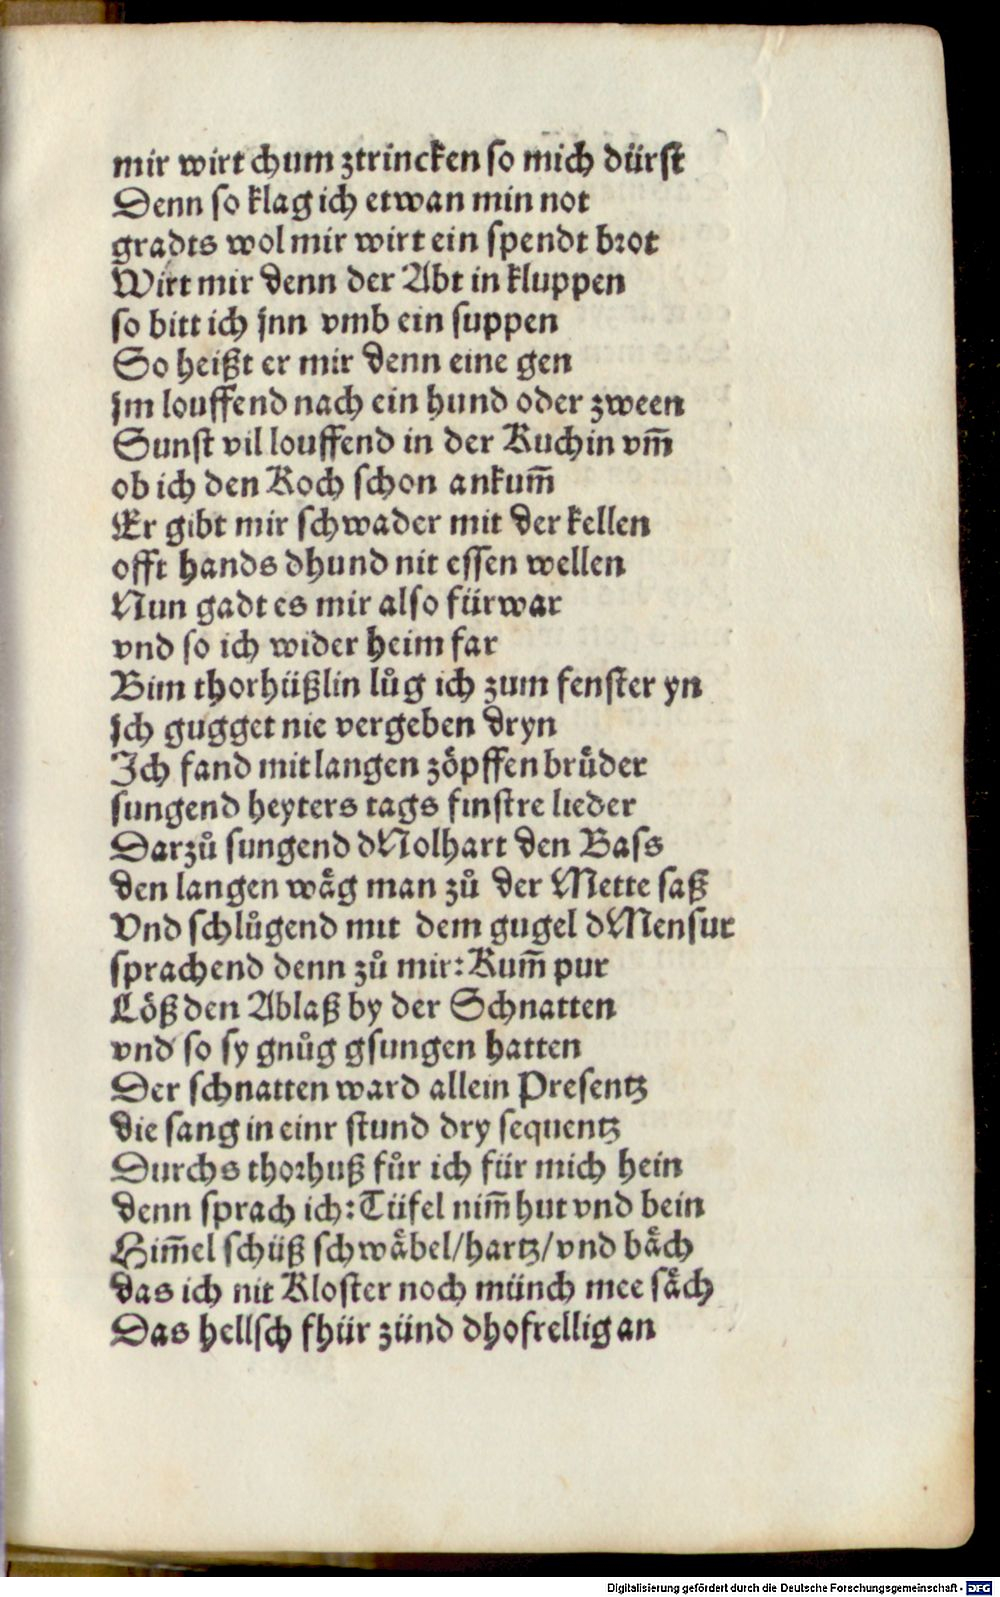 mir wirt chum ztrincken so mich dürst
Denn so klag ich etwan min not
gradts wol mir wirt ein spendt brot
Wirt mir denn der Abt in kluppen
so bitt ich jnn vmb ein suppen
So heißt er mir denn eine gen
jm louffend nach ein hund oder zween
Sunst vil louffend in der Kuchin vm̃
ob ich den Koch schon ankum̃
Er gibt mir schwader mit der kellen
offt hands dhund nit essen wellen
Nun gadt es mir also fürwar
vnd so ich wider heim far
Bim thorhüßlin lůg ich zum fenster yn
jch gugget nie vergeben dryn
Ich fand mit langen zöpffen brůder
sungend heyters tags finstre lieder
Darzů sungend dNolhart den Bass
den langen wäg man zů der Mette saß
Vnd schlůgend mit dem gugel dMensur
sprachend denn zů mir: Kum̃ pur
Löß den Ablaß by der Schnatten
vnd so sy gnůg gsungen hatten
Der schnatten ward allein Presentz
die sang in einr stund dry sequentz
Durchs thorhuß fůr ich für mich hein
denn sprach ich: Tüfel nim̃ hut vnd bein
Him̃el schüß schwäbel/hartz/vnd bäch
das ich nit Kloster noch münch mee säch
Das hellsch fhür zünd dhofrellig an
Digitalisierung gefördert durch die Deutsche Forschungsgemeinschaft - DFG